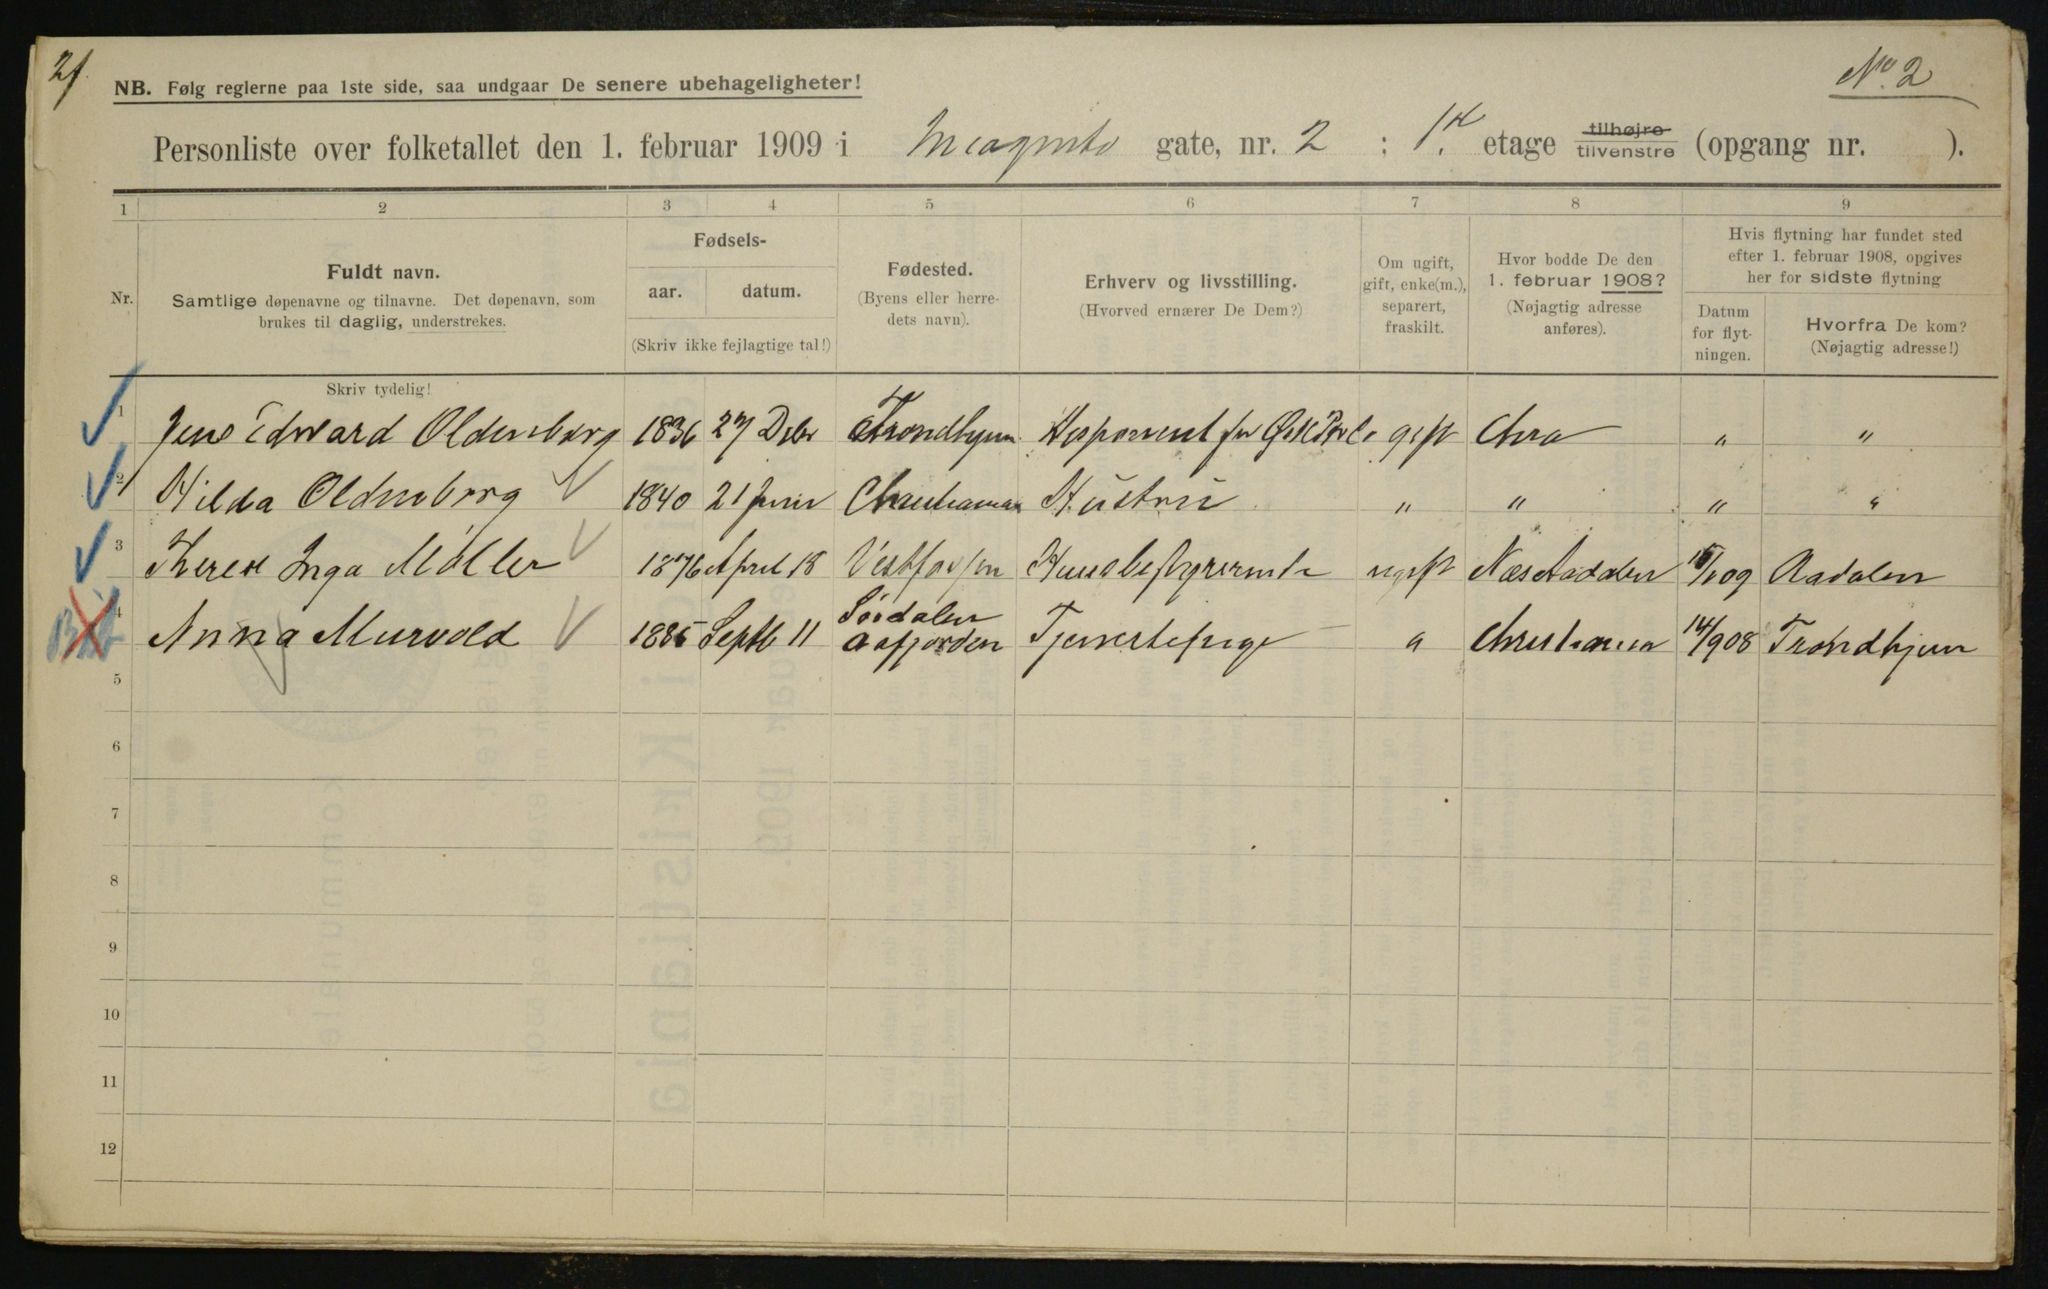 21.
NB. Følg reglerne paa 1ste side, saa undgaar De senere ubehageligheter!
No. 2
Personliste over folketallet den 1. februar 1909 i Incognito gate, nr. 2 : 1ste etage tilhøjre tilvenstre (opgang nr. ).
1 2 3 4 5 6 7 8 9
Nr.
Fuldt navn.
Samtlige døpenavne og tilnavne. Det døpenavn, som
brukes til daglig, understrekes.
Fødsels-
aar. datum.
(Skriv ikke fejlagtige tal!)
Fødested.
(Byens eller herre-
dets navn).
Erhverv og livsstilling.
(Hvorved ernærer De Dem?)
Om ugift,
gift, enke(m.),
separert,
fraskilt.
Hvor bodde De den
1. februar 1908?
(Nøjagtig adresse
anføres).
Hvis flytning har fundet sted
efter 1. februar 1908, opgives
her for sidste flytning
Datum
for flyt-
ningen.
Hvorfra De kom?
(Nøjagtig adresse!)
Skriv tydelig!
1 Jens Edward Oldenborg 1836 27 Debr Trondhjem gift Chra " "
2 Hilda Oldenborg 1840 21 Juni Christiania Hustru " " " "
3 Inga Möller 1876 April 18 Vestfossen Huusbestyrerinde ugift Næs Aadalen 15/1 09 Aadalen
4 Anna Murvold 1885 Septb 11 Sördalen Aafjorden Tjenestepige " Christiania 14/9 08 Trondhjem
5
6
7
8
9
10
11
12